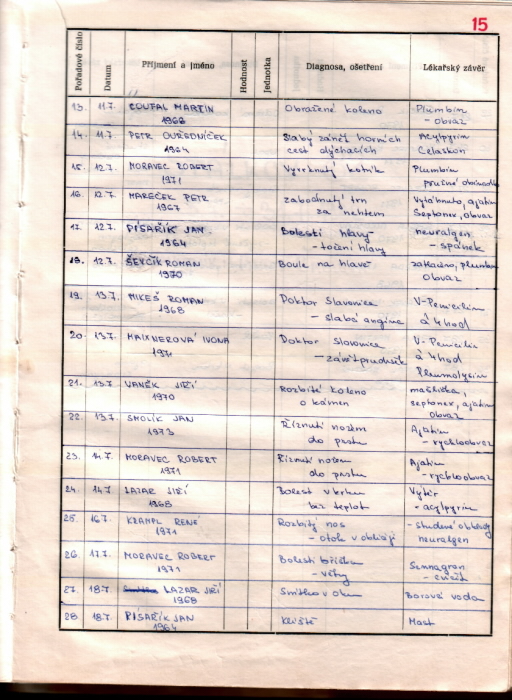 15
Pořadové číslo Datum Příjmení a jméno Hodnost Jednotka Diagnosa, ošetření Lékařský závěr
13. 11.7. COUFAL MARTIN Obražené koleno Plumbin
1968 - obvaz
14. 11.7. PETR OUŘEDNÍČEK Slabý zánět horních Acylpyrin
1964 cest dýchacích Celaskon
15. 12.7. MORAVEC ROBERT Vyvrknutý kotník Plumbin
1971 pružné
16. 12.7. MAREČEK PETR zabodnutý trn Vytáhnuto, ajatin
1967 za nehtem Septonex, obvaz
17. 12.7. PÍSAŘÍK JAN Bolesti hlavy neuralgen
1964 - točení hlavy - spánek
18. 12.7. ŠEVČÍK ROMAN Boule na hlavě
1970 obvaz
19. 13.7. MIKEŠ ROMAN Doktor Slavonice V-Penicilin
1968 - slabá angína á 4 hod
20. 13.7. MAIXNEROVÁ IVONA Doktor Slavonice V-Penicilin
1971 - zánět průdušek á 4 hod
Pleumolysin
21. 13.7. VANĚK JIŘÍ Rozbité koleno
1970 o kámen septonex, ajatin
obvaz
22. 13.7. SMOLÍK JAN Říznutí nožem Ajatin
1973 do prstu - rychloobvaz
23. 14.7. MORAVEC ROBERT Říznutí nožem Ajatin
1971 do prstu - rychloobvaz
24. 14.7. LAZAR JIŘÍ Bolest v krku Výtěr
1968 bez teplot - acylpyrin
25. 16.7. KRAMPL RENÉ Rozbitý nos - studené obklady
1971 - otok v obličeji neuralgen
26. 17.7. MORAVEC ROBERT Bolesti bříška
1971 - větry
27. 18.7. LAZAR JIŘÍ Smítko v oku Borová voda
1968
28 18.7. PISAŘÍK JAN Klíště Mast
1964